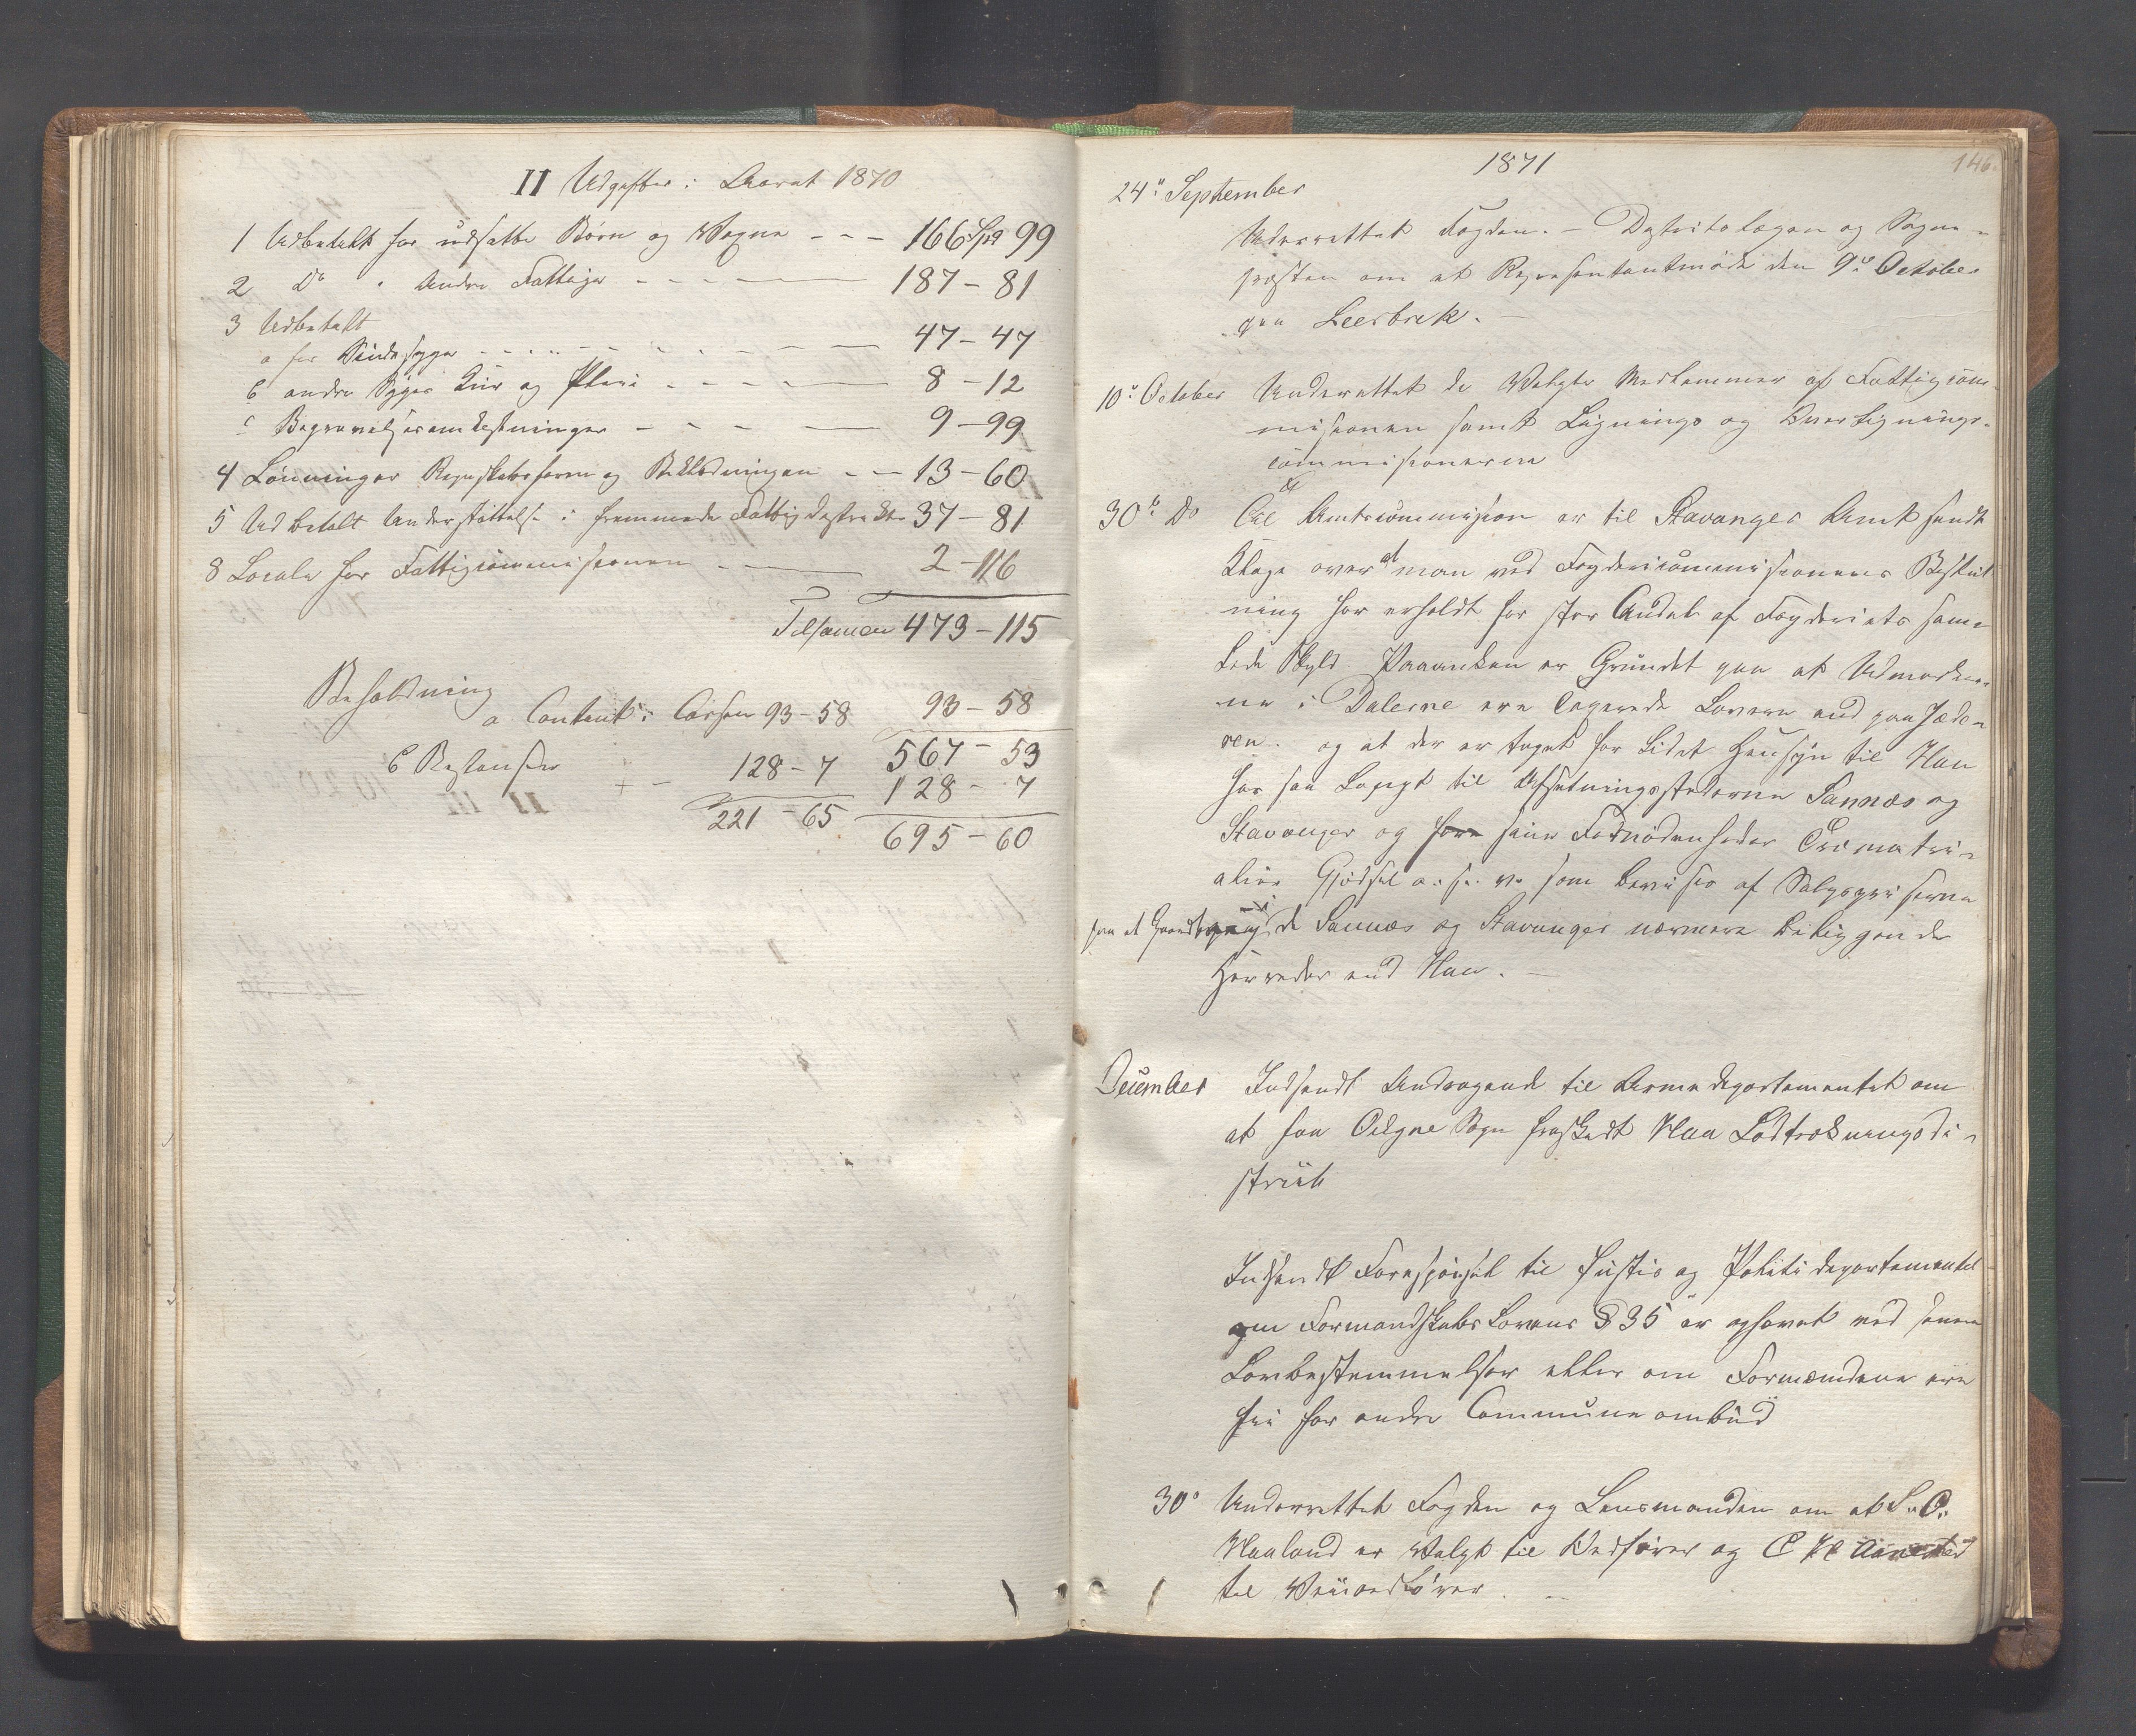 II Udgifter i Aaret 1870
1 Udbetalt for udsatte Børn og Vogne - - - 166 Spd 99
2 Do " Andre Fattige - - - 187 - 81
3 Udbetalt
a for Sindssyge - - - 47 - 47
b andre Syges Kur og Pleie - - - 8 - 12
c Begravelsesomkostninger - - - 9 - 99
4 Lønninger Regnskabsføren og Beklædningen - - 13 - 60
5 Udbetalt Understøttelse i fremmede Fattigdistrikter 37 - 81
8 Locale for Fattigcommissionen - 2 - 116
Tilsamen 473 - 115
Beholdning
a Contant i Cassen 93 - 58 93 - 58
567 - 53
b Restanser + - 128 - 7 128 - 7
221 - 65 695 - 60
146.
1871
24de September
Underrettet Fogden. - Distriktslægen og Sogne-
presten om et Representantmøde den 9de October
paa Leerbrek. -
10de October Underrettet de Valgte Medlemmer af Fattigcom-
missionen samt Lignings og Overlignings-
commissionerne
30te Do Til Amtscommission er til Stavanger Amt sendt
Klage over at man ved Fogdericommissionens Beslut-
ning har erholdt for stor Andel af Fogderiets sam-
lede Skyld Paaanken er Grundet paa at Udmarker-
ne i Dalerne ere Taxerede Lavere end paa Jæde-
ren. og at der er taget for Lidet Hensyn til Haa
har saa Langt til Afsetningsstederne Sannæs og
Stavanger og sine Fornødenheder
alier Gjødsel o. s. v. som bevises af Salgspriserne
paa et i de Sannæs og Stavanger nærmere beliggende
Herreder end Haa. -
December Indsendt Andragende til Armedepartementet om
at faa Ogne Sogn fraskedt Haa Lodtrækningsdi-
strict
Indsendt Forespørsel til Justis og Politidepartementet
om Formandskabs Lovens § 35 er ophævet ved senere
Lovbestemmelser eller om Formændene ere
fri for andre Communeombud
30te Underrettet Fogden og Lensmanden om at S. O.
Haaland er Valgt til Ordfører og
til Viceordfører. -